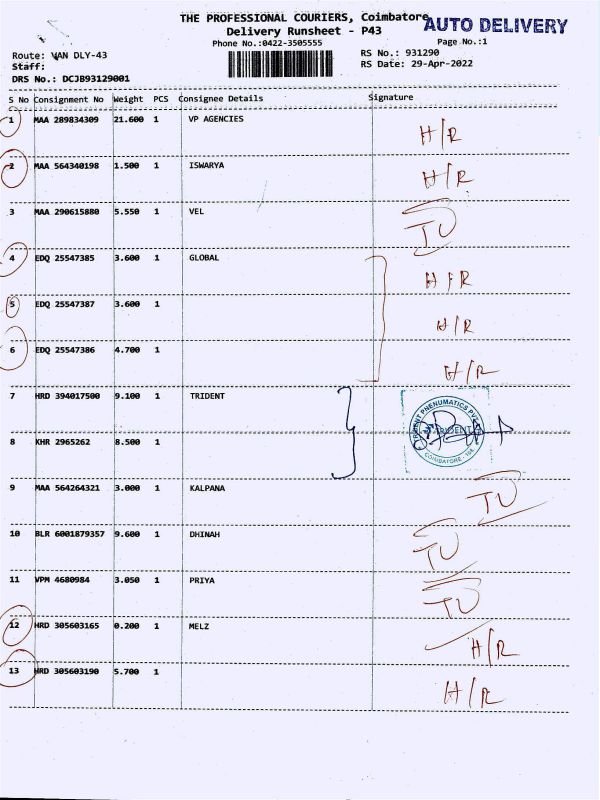 THE PROFESSIONAL COURIERS, Coimbatore
AUTO DELIVERY
Delivery Runsheet - P43
Phone No.:0422-3505555
Page No.:1
Route: VAN DLY-43
RS No.: 931290
Staff:
RS Date: 29-Apr-2022
DRS No.: DCJB93129001
S No Consignment No Weight PCS Consignee Details Signature
1 MAA 289834309 21.600 1 VP AGENCIES H/R
2 MAA 564340198 1.500 1 ISWARYA H/R
3 MAA 290615880 5.550 1 VEL TU
4 EDQ 25547385 3.600 1 GLOBAL H/R
5 EDQ 25547387 3.600 1 H/R
6 EDQ 25547386 4.700 1 H/R
7 HRD 394017500 9.100 1 TRIDENT
TRIDENT PNENUMATICS PVT
8 KHR 2965262 8.500 1
TRIDENT
COIMBATORE
9 MAA 564264321 3.000 1 KALPANA TU
10 BLR 6001879357 9.600 1 DHINAH TU
11 VPM 4680984 3.050 1 PRIYA TU
12 HRD 305603165 0.200 1 MELZ H/R
13 HRD 305603190 5.700 1 H/R